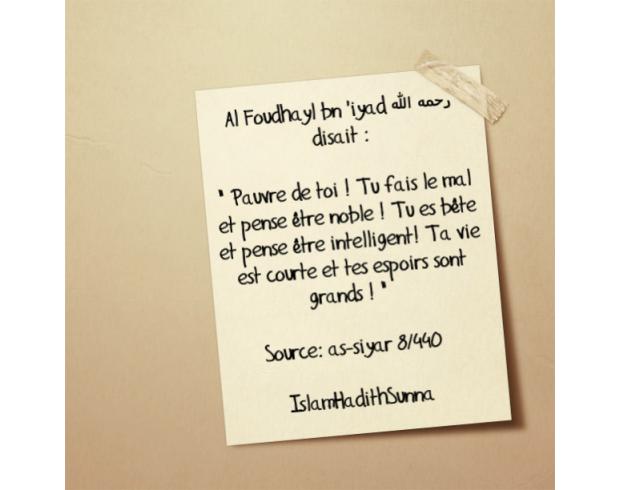 Al Foudhayl bn 'iyad رحمه الله
disait :
" Pauvre de toi ! Tu fais le mal
et pense être noble ! Tu es bête
et pense être intelligent! Ta vie
est courte et tes espoirs sont
grands ! "
Source: as-siyar 8/440
IslamHadithSunna